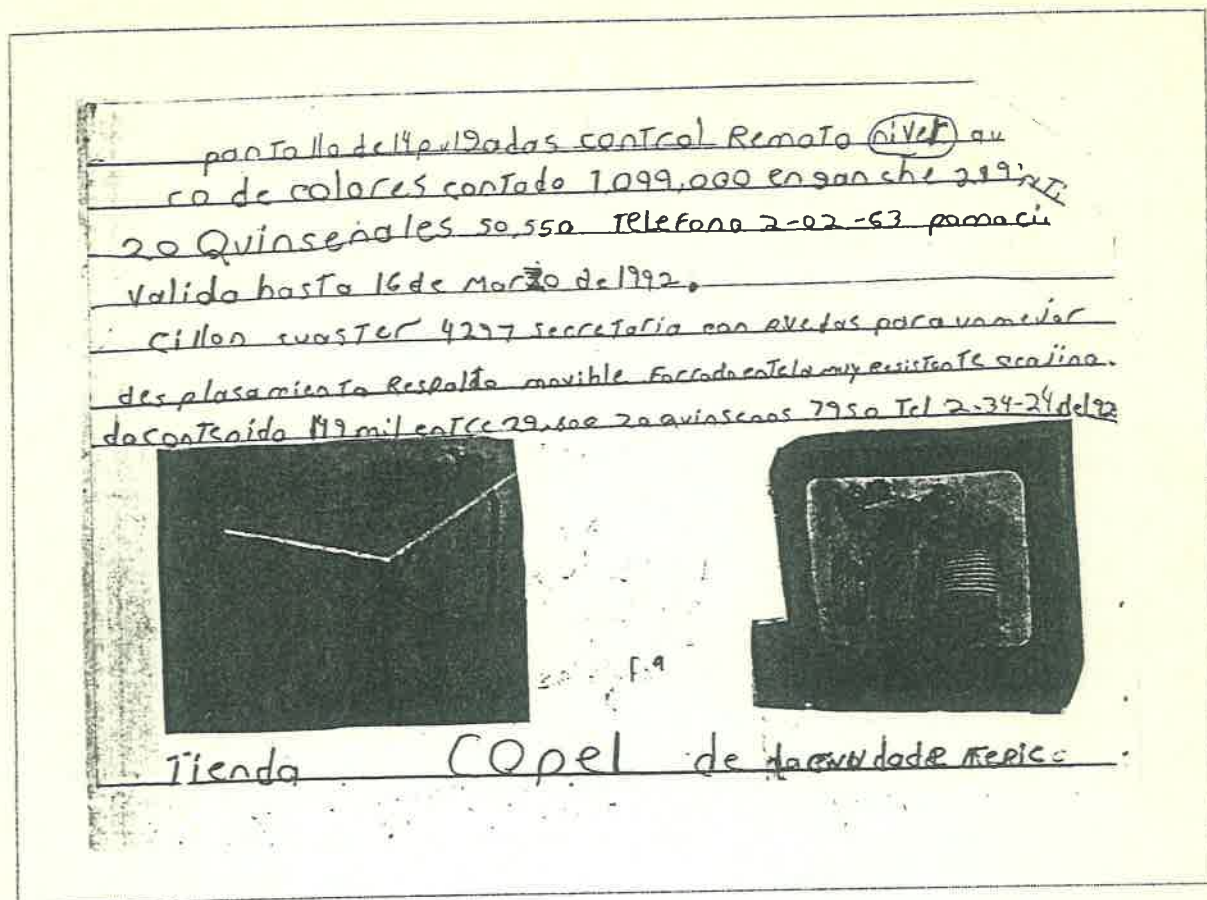 pantalla de 14 pulgadas control Remoto niver au
ro de colores contado 1.099,000 enganche 289
20 Quinseñales 50,550 Telefono 2-02-63
valido hasta 16 de Marzo de 1992.
cillon 4297 secretaria con ruedas para un mejor
desplasamiento Respaldo movible Forrado en tela muy resistente
149 mil 20 quinsenas 7950 Tel 2-34-24 del 92
F.9
Tienda COpel de